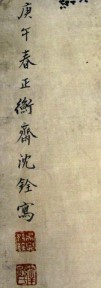 庚午春正衡齋沈銓寫